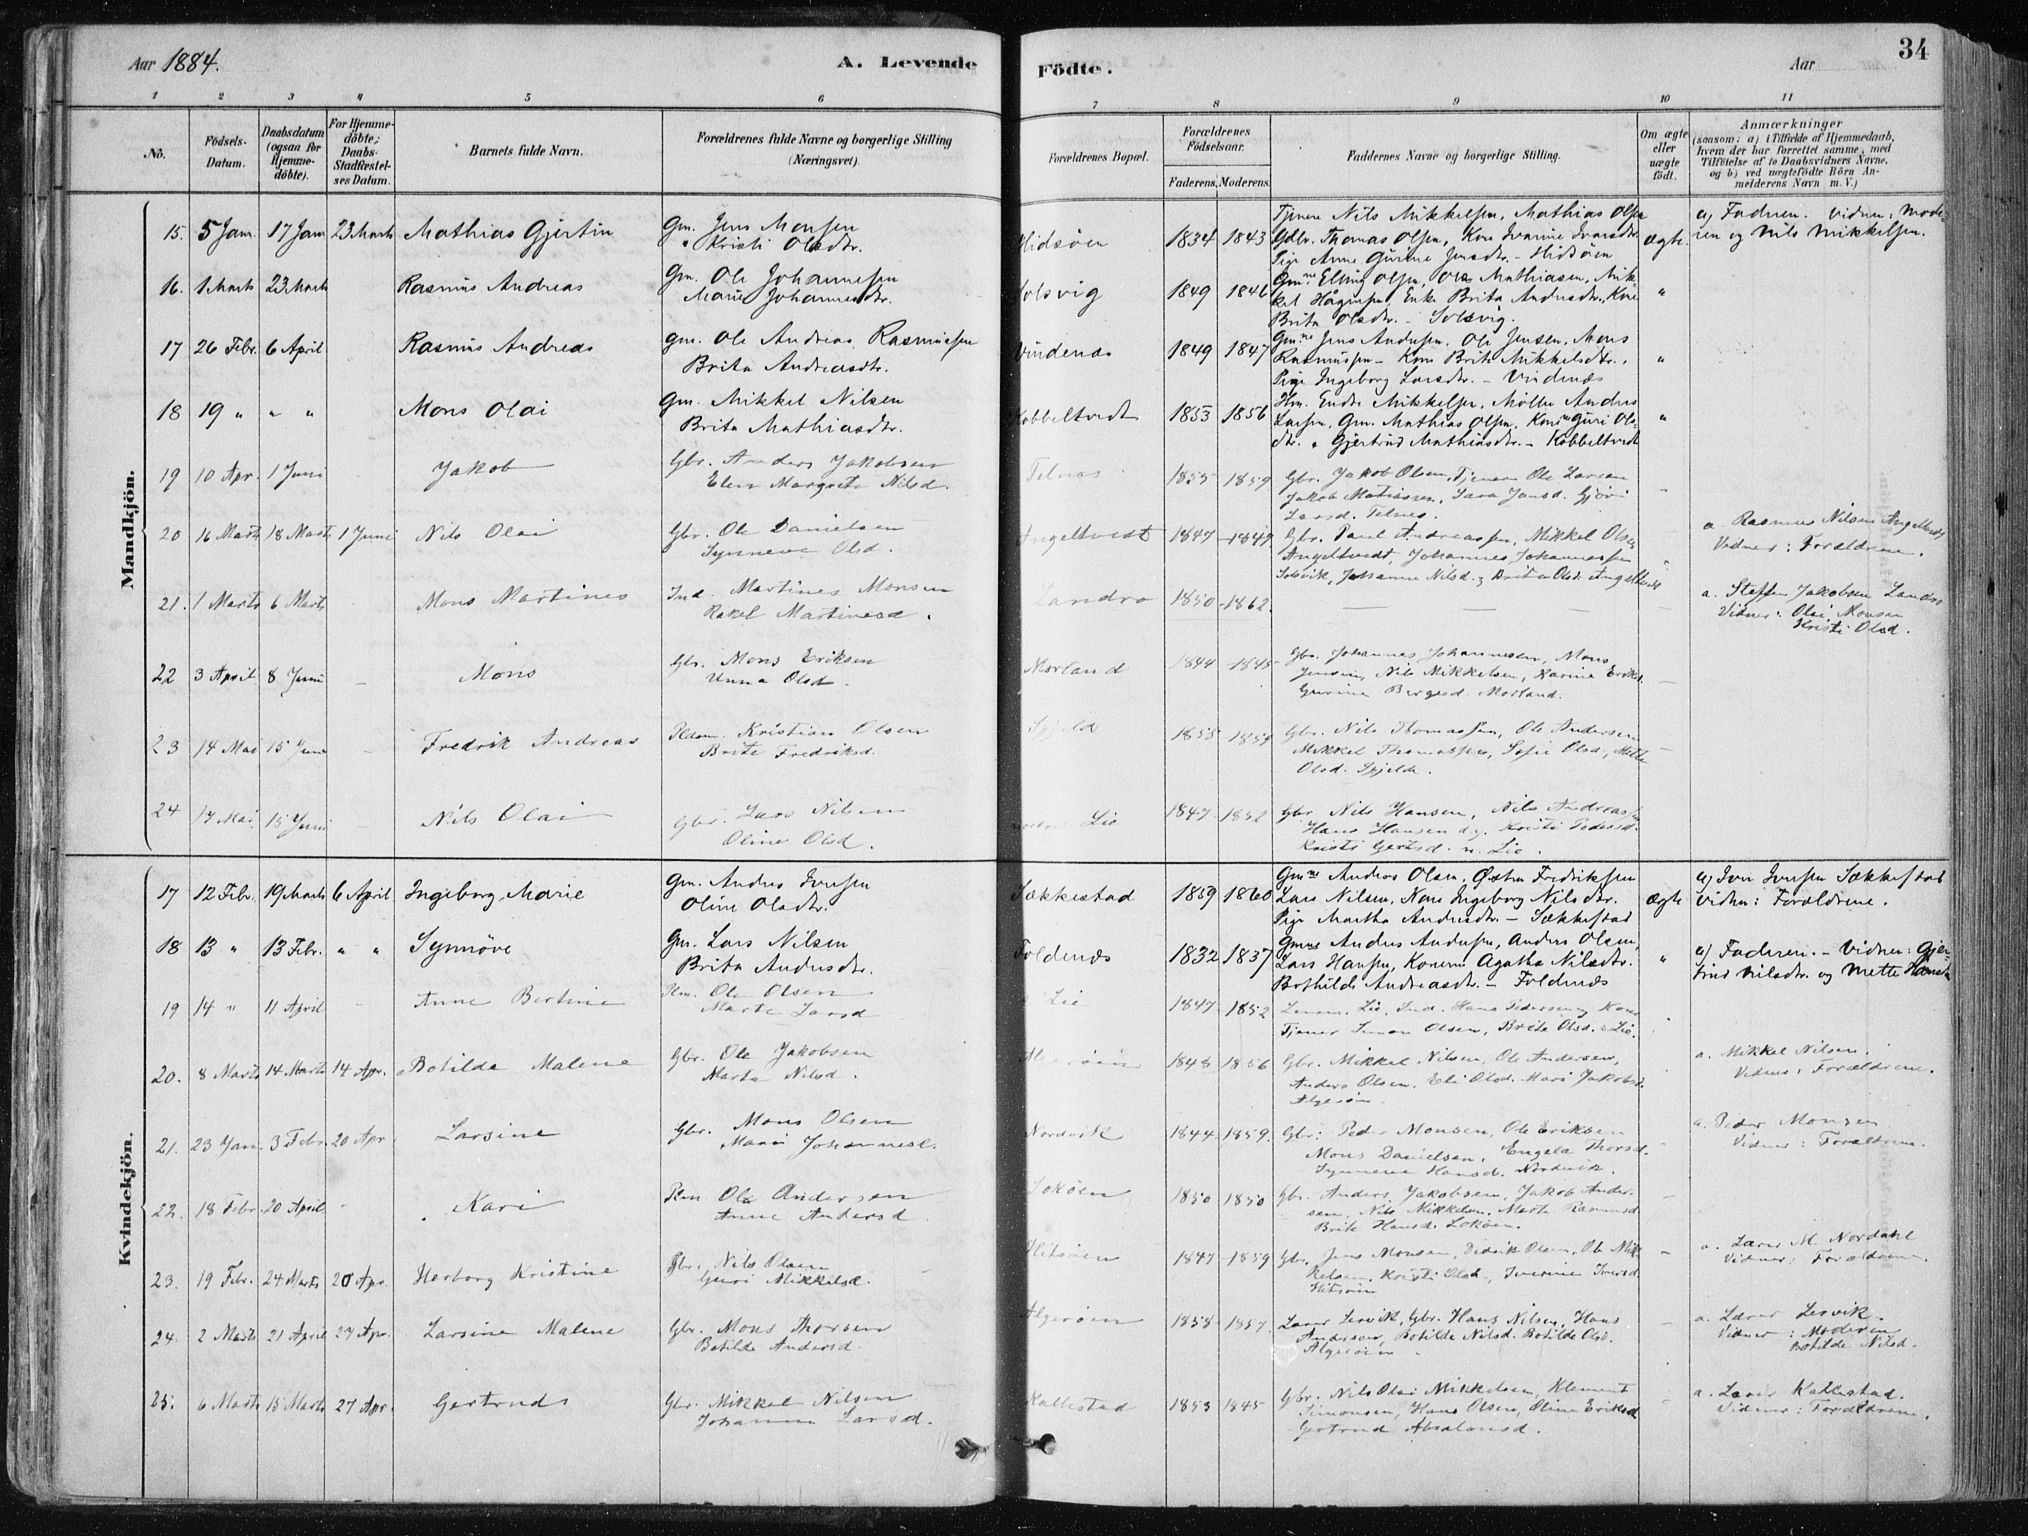 Aar 1884.
A. Levende Födte.
Aar
34
1 2 3 4 5 6 7 8 9 10 11
No.
Födsels-Datum.
Daabsdatum (ogsaa for Hjemmedöbte).
For Hjemmedöbte; Daabs-Stadfæstelses Datum.
Barnets fulde Navn.
Forældrenes fulde Navne og borgerlige Stilling (Næringsvei).
Forældrenes Bopæl.
Forældrenes Födselsaar.
Faderens. Moderens.
Faddernes Navne og borgerlige Stilling.
Om ægte eller uægte födt.
Anmærkninger
(saasom: a) i Tilfælde af Hjemmedaab, hvem der har forrettet samme, med Tilföielse af to Daabsvidners Navne, og b) ved uægtefödte Börn Anmelderens Navn m. V.)
Mandkjön.
15. 5 Janr. 17 Janr 23 Marts Mathias Gjertin Gm. Jens Monsen
" Kristi Olsdtr. Hidsöen 1834 1843 Tjenere Nils Mikkelsen, Mathias Olsen
Gdbr. Thomas Olsen, Kone Ivarine Ivarsdtr.
Pige Anne Gurine Jensdtr. - Hidsöen ægte a) Faderen. Vidner: Moderen og Nils Mikkelsen.
16. 1 Marts 23 Marts Rasmus Andreas Gm. Ole Johannessen
Marie Johannesdtr. Solsvig 1849 1846 Gmne Elling Olsen, Ole Mathiasen, Mikkel Hågensen, Enke Brita Andersdtr., Kone
Brita Olsdtr. - Solsvig. "
17 26 Febr. 6 April Rasmus Andreas Gm. Ole Andreas Rasmussen
Brita Andreasdtr. Vindenæs 1849 1847 Gmne Jens Andersen, Ole Jensen, Mons
Rasmussen - Kone Brite Mikkelsdtr.,
Pige Ingeborg Larsdtr. - Vindenæs "
18 19 " " " Mons Olai Gm. Mikkel Nilsen
Brita Mathiasdtr. Kobbeltvedt 1853 1856 Hm. Endre Mikkelsen, Møller Anders
Larsen, Gm. Mathias Olsen, Kone Guri Olsdtr. " Gjertrud Mathiasdtr. - Kobbeltvedt "
19 10 Apr. 1 Juni Jakob Gbr. Anders Jakobsen
Elen Margrete Nilsd. Telnæs 1855 1859 Gbr. Jakob Olsen, Tjener Ole Larsen
Jakob Matiassen, Sara Jansd. Gjöri
Larsd. Telnes.
20 16 Marts 18 Marts 1 Juni Nils Olai Gbr. Ole Danielsen
Synneve Olsd. Angeltvedt 1847 1849 Gbr. Paul Andreassen, Mikkel Olsen
Angeltvedt, Johannes Johannessen
Solsvik, Johanne Nilsd. Brita Olsd. Angeltvedt a. Rasmus Nilsen Angeltvedt
Vidner: Forældrene.
21. 1 Marts 6 Marts Mons Martines Ind. Martines Monsen
Rakel Martinesd. Landro 1850 1862. a. Steffen Jakobsen Landro
Vidner: Olai Monsen
Kristi Olsd.
22 3 April 8 Juni Mons Gbr. Mons Eriksen
Unna Olsd. Morland 1844 1845 Gbr. Johannes Johannessen, Mons
Jensen, Nils Mikkelsen, Karine Eriksd.
Gurine Børgesd. Morland.
23 14 Mai 15 Juni Fredrik Andreas Kristian Olsen
Brite Fredriksd. Spjeld 1855 1854 Gbr. Nils Thomassen, Ole Andersen
Mikkel Thomassen, Sofie Olsd., Mette
Olsd. Spjelde.
24 17 Mai 15 Juni Nils Olai Gbr. Lars Nilsen
Oline Olsd. Lie 1847 1852 Gbr. Nils Hansen, Nils Andreassen
Hans Hansen d.y. Kristi Pedersd.
Kristi Gertsd. n. Lie.
Kvindekjön.
17 12 Febr. 19 Marts 6 April Ingeborg Marie Gm. Andres Iversen
Oline Olsdtr. Sækkestad 1859 1860 Gmne Andres Olsen, Østen Fredriksen
Lars Nilsen, Kone Ingeborg Nilsdtr.
Pige Martha Andersdtr. - Sækkestad ægte a) Iver Iversen Sækkestad
Vidner: Forældrene.
18 13 " 13 Febr. " " Synnöve Gm. Lars Nilsen
Brita Andersdtr. Foldenæs 1832 1837 Gmne Anders Andersen, Anders Olsen,
Lars Hansen, Konerne Agatha Nilsdtr.
Bothilde Andreasdtr. - Foldenæs " a) Faderen. - Vidner: Gjertrud Nilsdtr. og Mette Hansdtr.
19 14 " 11 April Anne Bertine Ole Olsen
Marte Larsd Lie 1847 1852 Lie, Ind. Hans Pedersen og Kone
Tjener Simon Olsen, Brite Olsd. Lie.
20. 8 Marts 14 Marts 14 Apr. Botilde Malene Gbr. Ole Jakobsen
Marta Nilsd. Algeröen 1848 1856 Gbr. Mikkel Nilsen, Ole Andersen,
Anders Olsen, Eli Olsd. Mari Jakobsd.
Algeröen a. Mikkel Nilsen.
Vidner: Forældrene.
21. 23 Jan. 3 Febr. 20 Apr. Larsine Gbr. Mons Olsen
Mari Johannesd. Nordvik 1844 1859. Gbr: Peder Monsen, Ole Eriksen
Mons Danielsen, Engela Thorsd.
Synneve Hansd. Nordvik. a. Peder Monsen
Vidner: Forældrene.
22. 18 Febr. 20 April Kari Ole Andersen
Anne Andersd. Lokøen 1850 1850 Gbr. Anders Jakobsen, Jakob Andersen, Nils Mikkelsen, Marte Rasmusd.
Brite Hansd. Lokøen.
23. 19 Febr. 24 Marts 20 Apr. Herborg Kristine Gbr. Nils Olsen
Guri Mikkelsd. Hitsöen 1847 1859 Gbr. Jens Monsen, Didrik Olsen, Ole Mikkelsen, Kristi Olsd., Iverine Iversd.
Hitsöen a. Lærer M. Nordahl
Vidner: Forældrene
24. 2 Marts 21 April 27 Apr. Larsine Malene Gbr. Mons Thorsen
Botilde Andersd. Algeröen 1858 1857. Lærer Lesvik, Gbr. Hans Nilsen, Hans
Andersen, Botilde Nilsd. Botilde Olsd.
Algeröen. a. Lærer Lesvik.
Vidner: Moderen
Botilde Nilsd.
25. 6 Marts 15 Marts 27 Apr. Gertruds Gbr. Mikkel Nilsen
Johanna Larsd. Kallestad 1853 1845 Gbr. Nils Olai Mikkelsen, Klement
Simonsen, Hans Olsen, Oline Eriksd.
Gertrud Absalonsd. a. Lærer Kallestad.
Vidner: Forældrene.